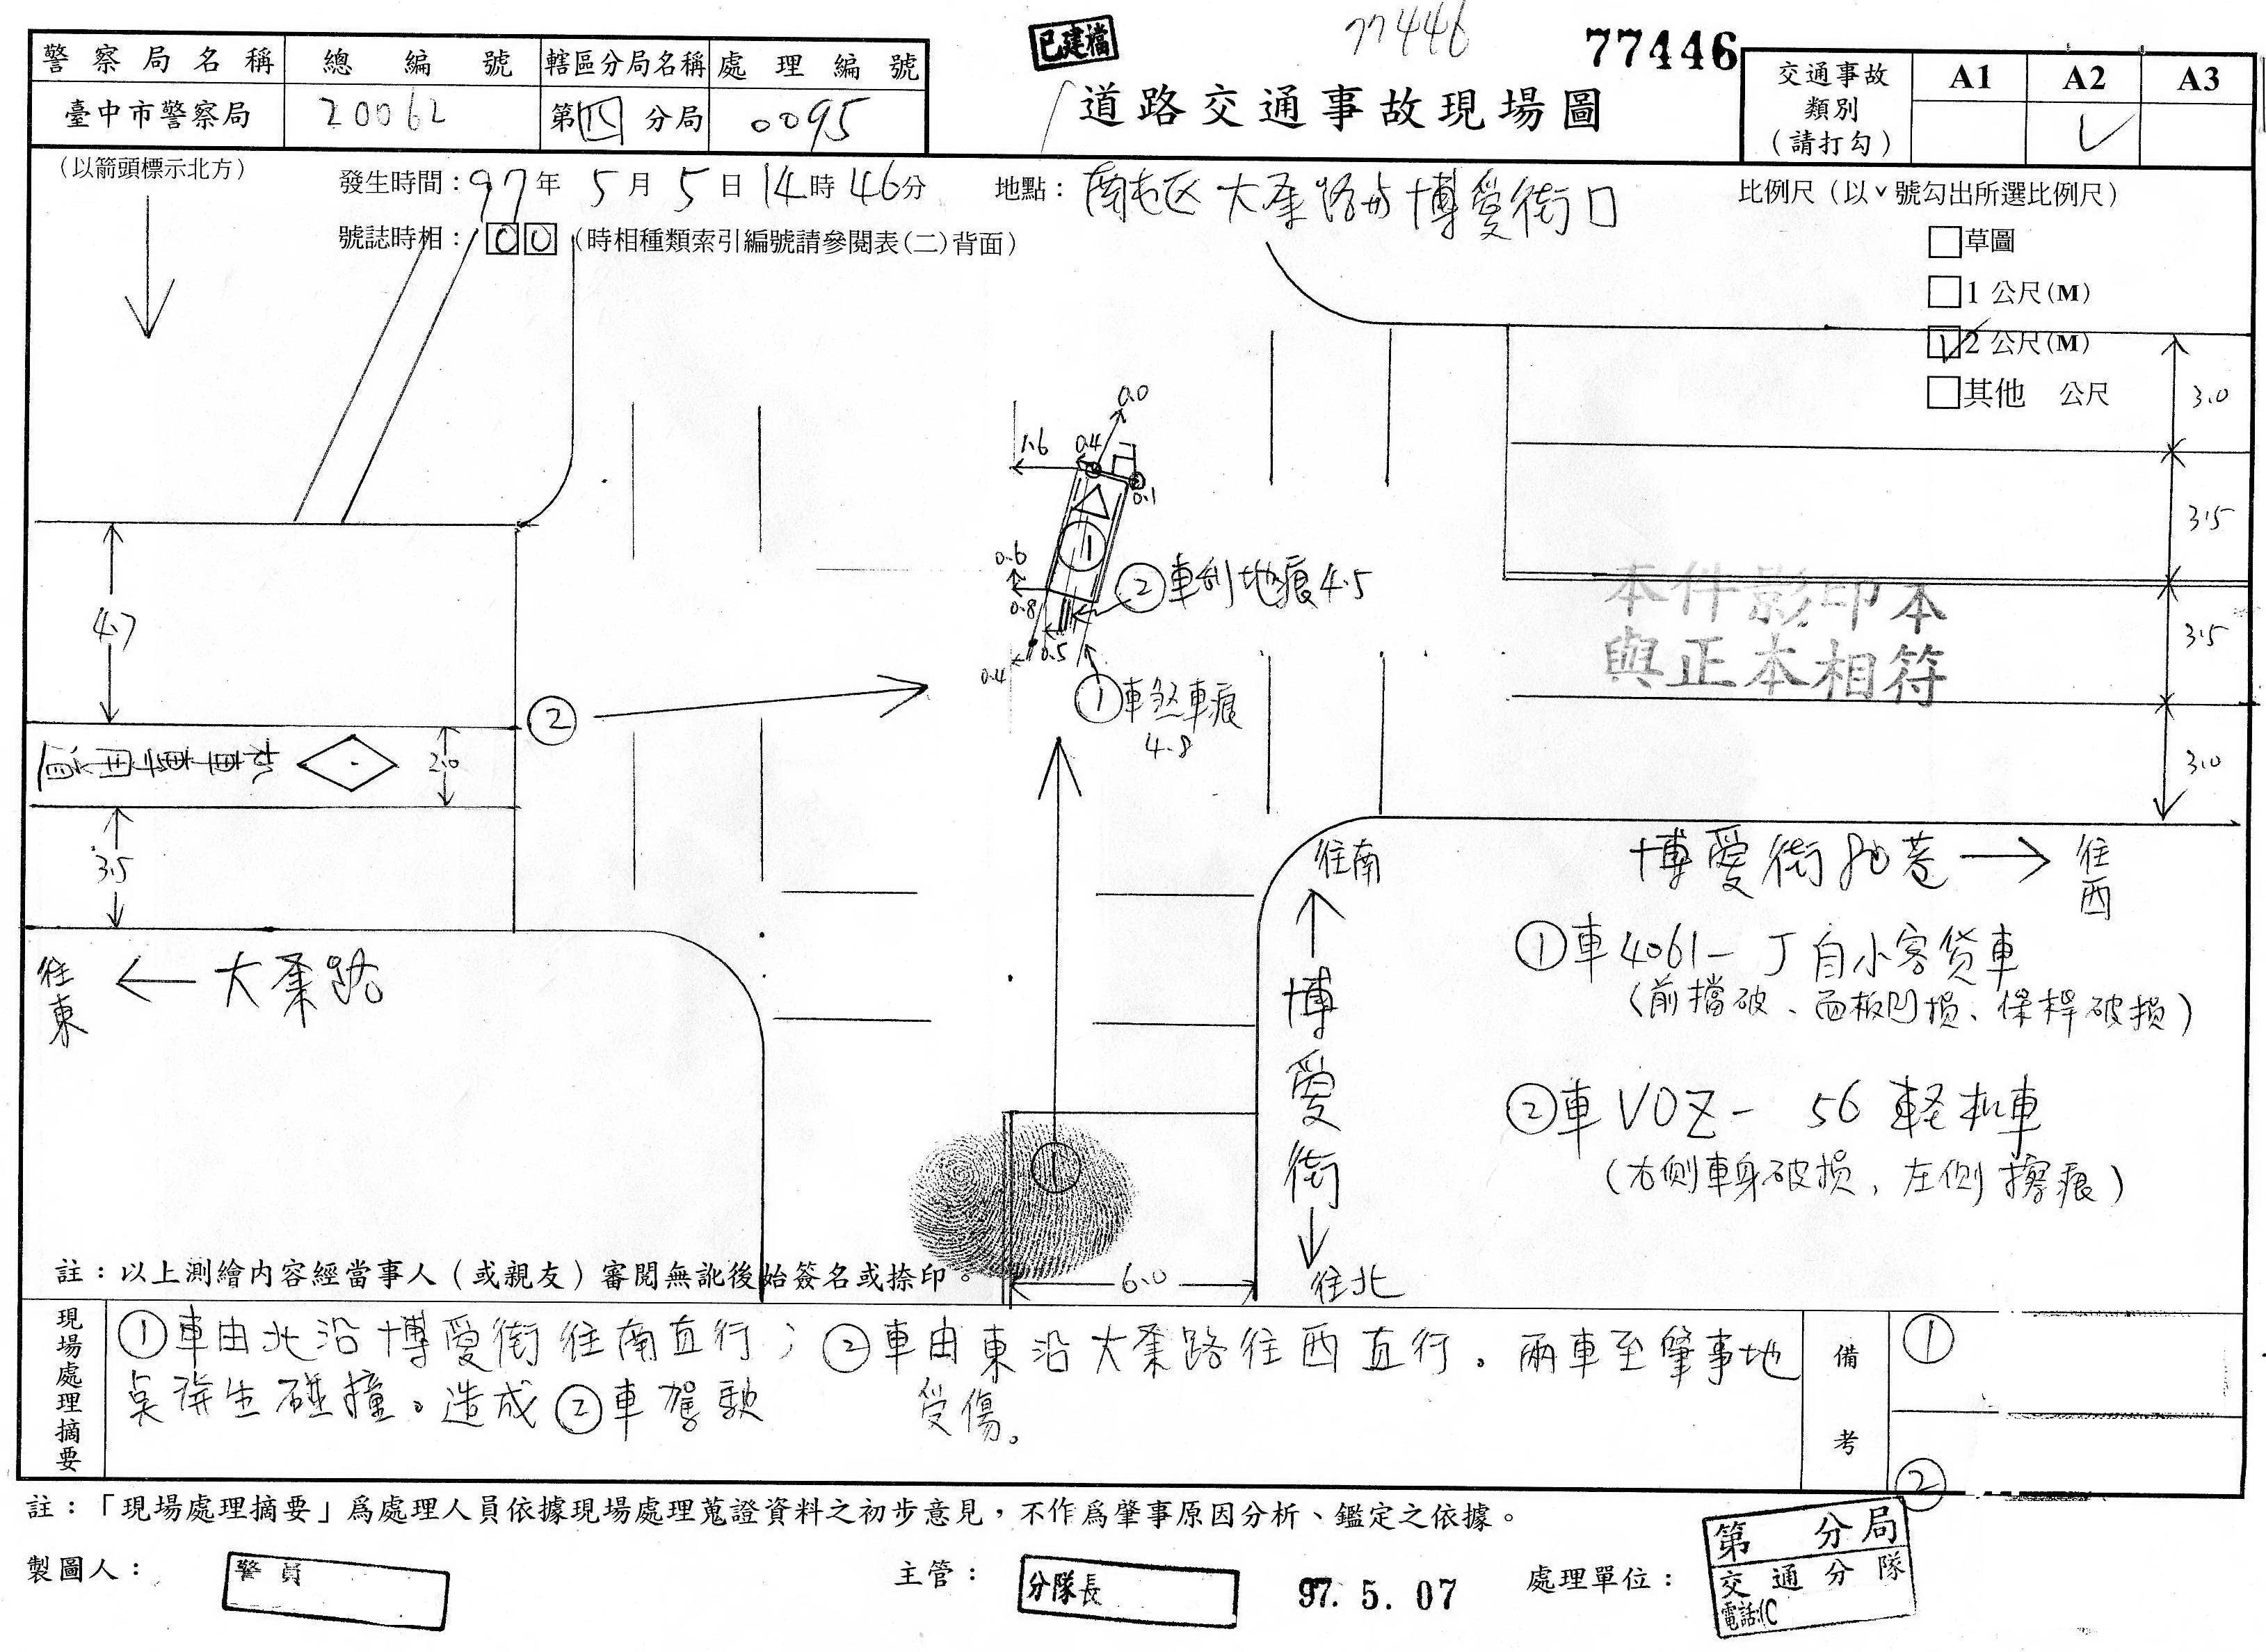 已建檔
77446
77446
警察局名稱 總編號 轄區分局名稱 處理編號
臺中市警察局 20062 第四分局 0095
道路交通事故現場圖
交通事故類別(請打勾) A1 A2 A3
✓
(以箭頭標示北方)
發生時間：97年5月5日14時46分
地點：南屯区大業路与博愛街口
號誌時相：00(時相種類索引編號請參閱表(二)背面)
比例尺(以v號勾出所選比例尺)
草圖
1公尺(M)
✓2公尺(M)
其他 公尺
3.0
3.5
3.5
3.0
0.0
1.6
0.4
0.1
①
0.6
0.8
0.5
0.4
②車刮地痕4.5
①車煞車痕
4.8
本件影印本
與正本相符
4.7
②
2.0
3.5
往東 ← 大業路
往南
博愛街
往北
6.0
①
→ 往西
①車4061-J自小客貨車
(前擋破、面板凹損、保桿破損)
②車VOZ-56輕机車
(右側車身破損,左側擦痕)
註：以上測繪內容經當事人(或親友)審閱無訛後始簽名或捺印。
現場處理摘要
①車由北沿博愛街往南直行；②車由東沿大業路往西直行。兩車至肇事地
點併生碰撞。造成②車駕駛 受傷。
備考
①
②
註：「現場處理摘要」爲處理人員依據現場處理蒐證資料之初步意見，不作爲肇事原因分析、鑑定之依據。
製圖人： 警員
主管： 分隊長
97. 5. 07
處理單位： 第 分局
交通分隊
電話:(C